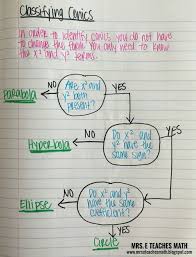 Classifying Conics
In order to identify conics you do not have
to change the form. You only need to know
the x² and y² terms.
Are x² and
y² both
present?
NO
YES
Parabola
Do x² and
y² have the
same sign?
NO
YES
Hyperbola
Do x² and
y² have the
same
coefficient?
NO
YES
Ellipse
Circle
MRS. E TEACHES MATH
www.mrseteachesmath.blogspot.com